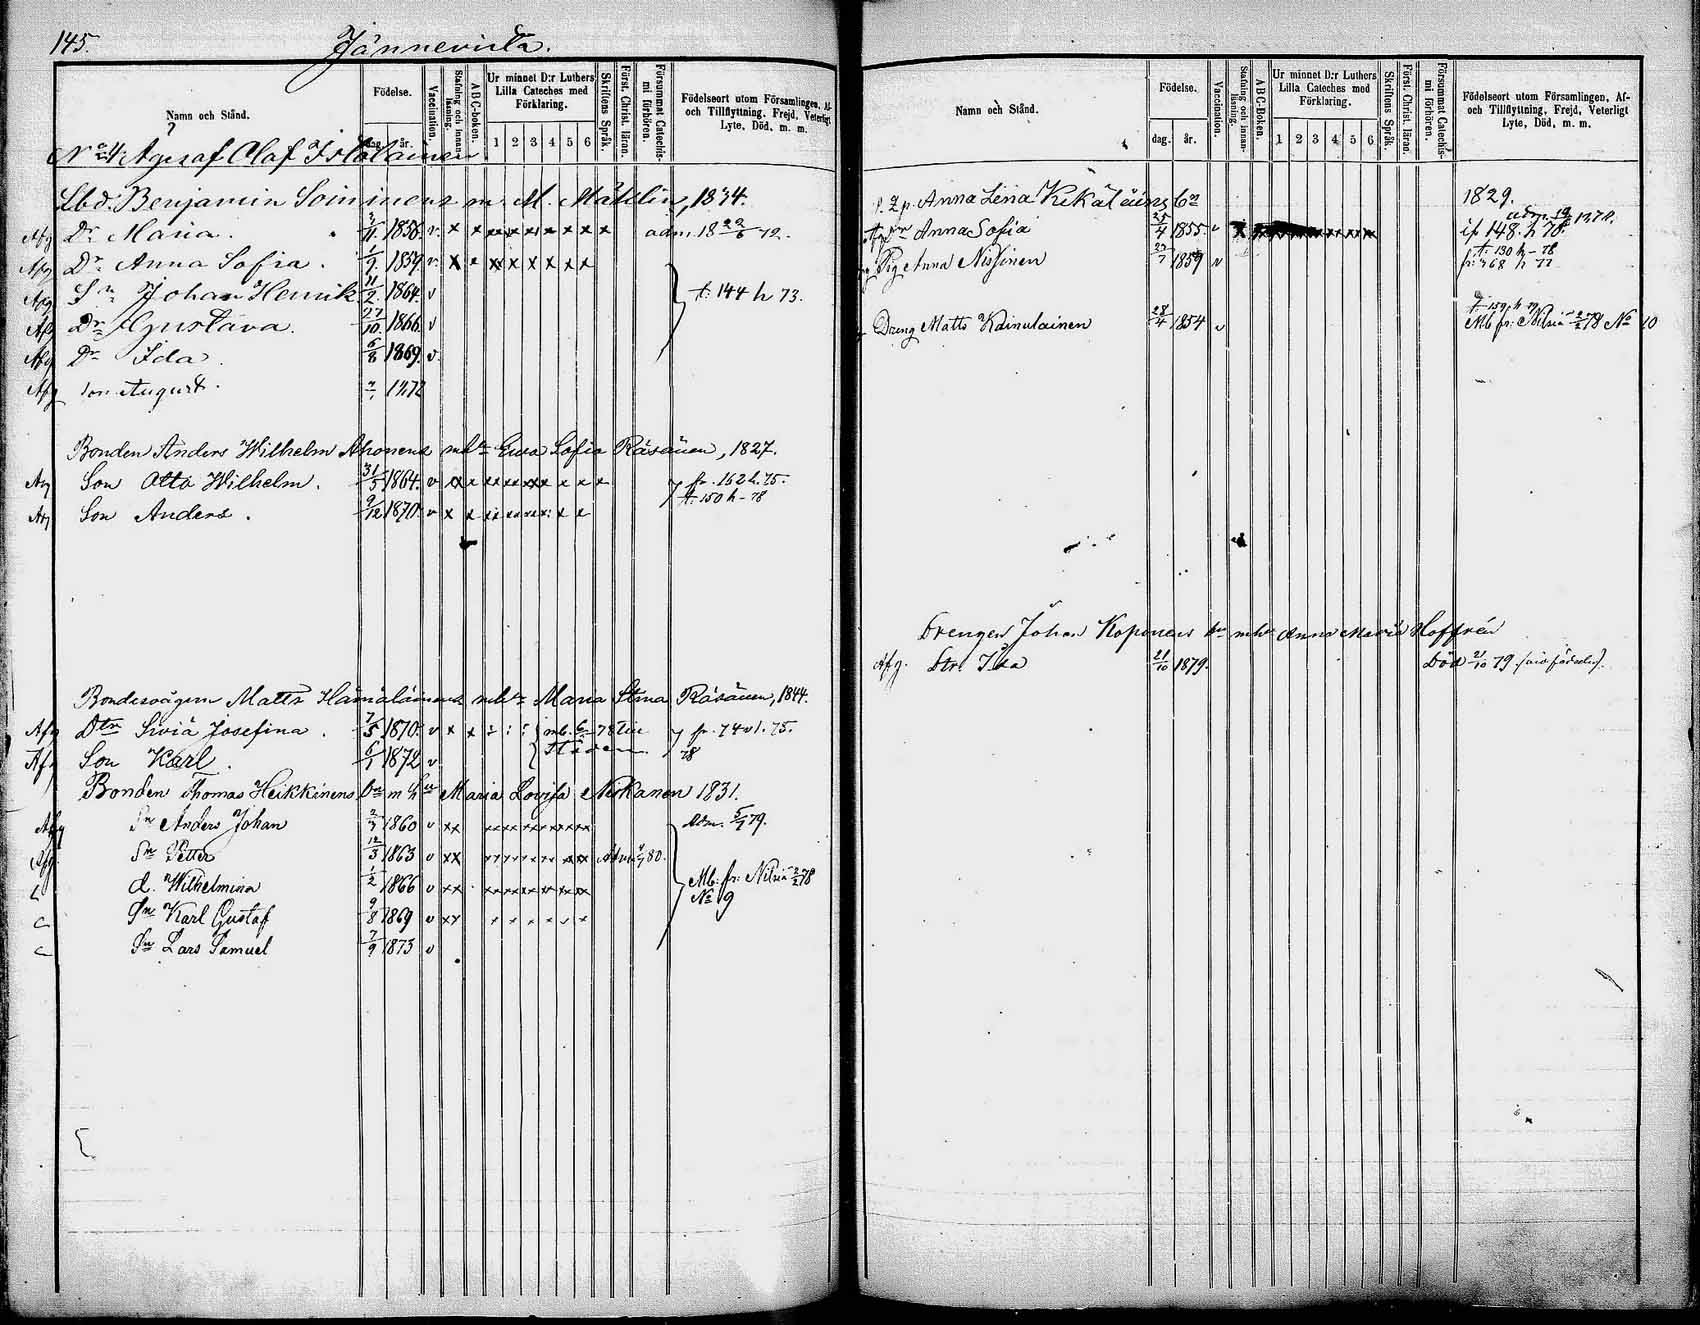 145.
Jännevirta.
Namn och Stånd.
Födelse.
dag. år.
Vaccination.
Stafning och innanläsning.
ABC-boken.
Ur minnet D:r Luthers Lilla Cateches med Förklaring.
1 2 3 4 5 6
Skriftens Språk.
Först. Christ. läran.
Försummat Catechismi förhören.
Födelseort utom Församlingen, Af- och Tillflyttning, Frejd, Veterligt Lyte, Död, m. m.
No 4 Olaf
Lbd. Benjamin Soininens m. M. Måhlin, 1834.
Afg Dr Maria. 1858. v. x x x x x x x x x adm. 18 22/6 72.
Afg Dr Anna Sofia. 1/9 1859 v. x x x x x x x x
Afg Sn Johan Henrik 11/2 1864. v t. 144 h 73.
Afg Dr Gustava. 27/10 1866. v
Afg Dr Ida. 6/8 1869. v.
Afg son August. 1872
Bonden Anders Wilhelm Ahonens mhu Ewa Sofia Räsänen, 1827.
Afg Son Otto Wilhelm. 31/5 1864. v x x x x x x x x x fr. 162 h. 75.
t. 150 h - 78
Afg Son Anders. 9/12 1870. v x x x x x x x x
Bondesvågern Matts Hämäläinens mhu Maria Stina Räsänen, 1844.
Afg Dtr Siviä Josefina. 7/5 1870. v x x mb. 6 78 till fr. 74 vl. 75.
Staden 78
Afg Son Karl. 6/1 1872 v
Bonden Thomas Heikkinens bn m hu Maria Lovisa Niskanen 1831.
Afg Sn Anders Johan 1860 v x x x x x x x x Adm. 5/7 79.
Afg Sn Petter 12/3 1863 v x x x x x x x x Adm. 80.
d. Wilhelmina 1/2 1866 v x x x x x x x x Mb: fr: Nilsiä 78
No 9
Sn Karl Gustaf 9/8 1869 v x x x x x x x x
Sn Lars Samuel 7/9 1873 v
Namn och Stånd.
Födelse.
dag. år.
Vaccination.
Stafning och innanläsning.
ABC-boken.
Ur minnet D:r Luthers Lilla Cateches med Förklaring.
1 2 3 4 5 6
Skriftens Språk.
Först. Christ. läran.
Försummat Catechismi förhören.
Födelseort utom Församlingen, Af- och Tillflyttning, Frejd, Veterligt Lyte, Död, m. m.
Anna Lena Kekäläins bn 1829.
Anna Sofia 25/4 1855 v x 148. h 78.
Pig Anna Nissinen 1859 v t. 130 h - 78
fr: 68 h 77
Dreng Matts Kainulainen 28/4 1854 v Mb fr: Nilsiä 78 No 10
Drengen Johan Koponens bn mhu Anna Maria Hoffrén
Afg. Dtr. Ida 21/10 1879. Död 21/10 79